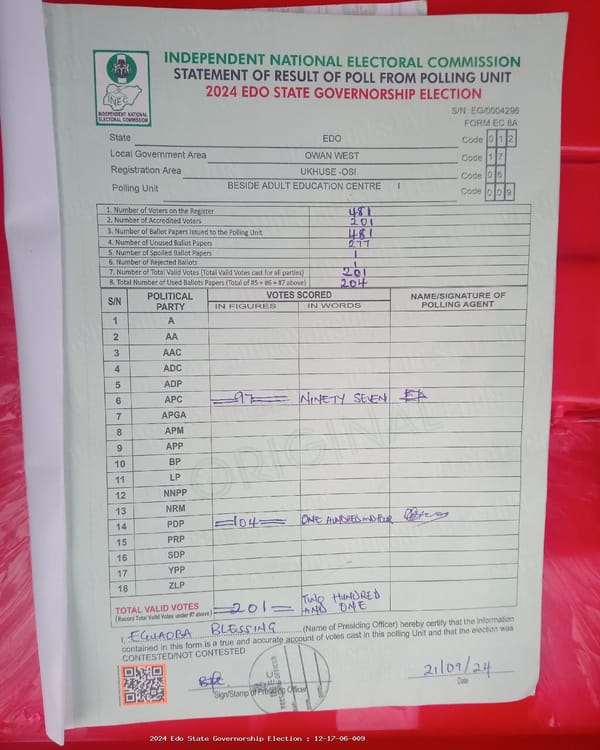 INDEPENDENT NATIONAL ELECTORAL COMMISSION
STATEMENT OF RESULT OF POLL FROM POLLING UNIT
2024 EDO STATE GOVERNORSHIP ELECTION
INEC
INDEPENDENT NATIONAL
ELECTORAL COMMISSION
S/N: EG/0004296
FORM EC 8A
State EDO Code 0 1 2
Local Government Area OWAN WEST Code 1 7
Registration Area UKHUSE -OSI Code 0 6
Polling Unit BESIDE ADULT EDUCATION CENTRE I Code 0 0 9
1. Number of Voters on the Register 481
2. Number of Accredited Voters 201
3. Number of Ballot Papers Issued to the Polling Unit 481
4. Number of Unused Ballot Papers 277
5. Number of Spoiled Ballot Papers 1
6. Number of Rejected Ballots 1
7. Number of Total Valid Votes (Total Valid Votes cast for all parties) 201
8. Total Number of Used Ballots Papers (Total of #5 + #6 + #7 above) 204
S/N POLITICAL PARTY VOTES SCORED NAME/SIGNATURE OF POLLING AGENT
IN FIGURES IN WORDS
1 A
2 AA
3 AAC
4 ADC
5 ADP
6 APC 97 NINETY SEVEN
7 APGA
8 APM
9 APP
10 BP
11 LP
12 NNPP
13 NRM
14 PDP 104 ONE HUNDRED AND FOUR
15 PRP
16 SDP
17 YPP
18 ZLP
ORIGINAL
TOTAL VALID VOTES 201 TWO HUNDRED AND ONE
(Record Total Valid Votes under #7 above)
I, EGUAOBA BLESSING (Name of Presiding Officer) hereby certify that the information
contained in this form is a true and accurate account of votes cast in this polling Unit and that the election was
CONTESTED/NOT CONTESTED
21/09/24
Sign/Stamp of Presiding Officer Date
2024 Edo State Governorship Election : 12-17-06-009